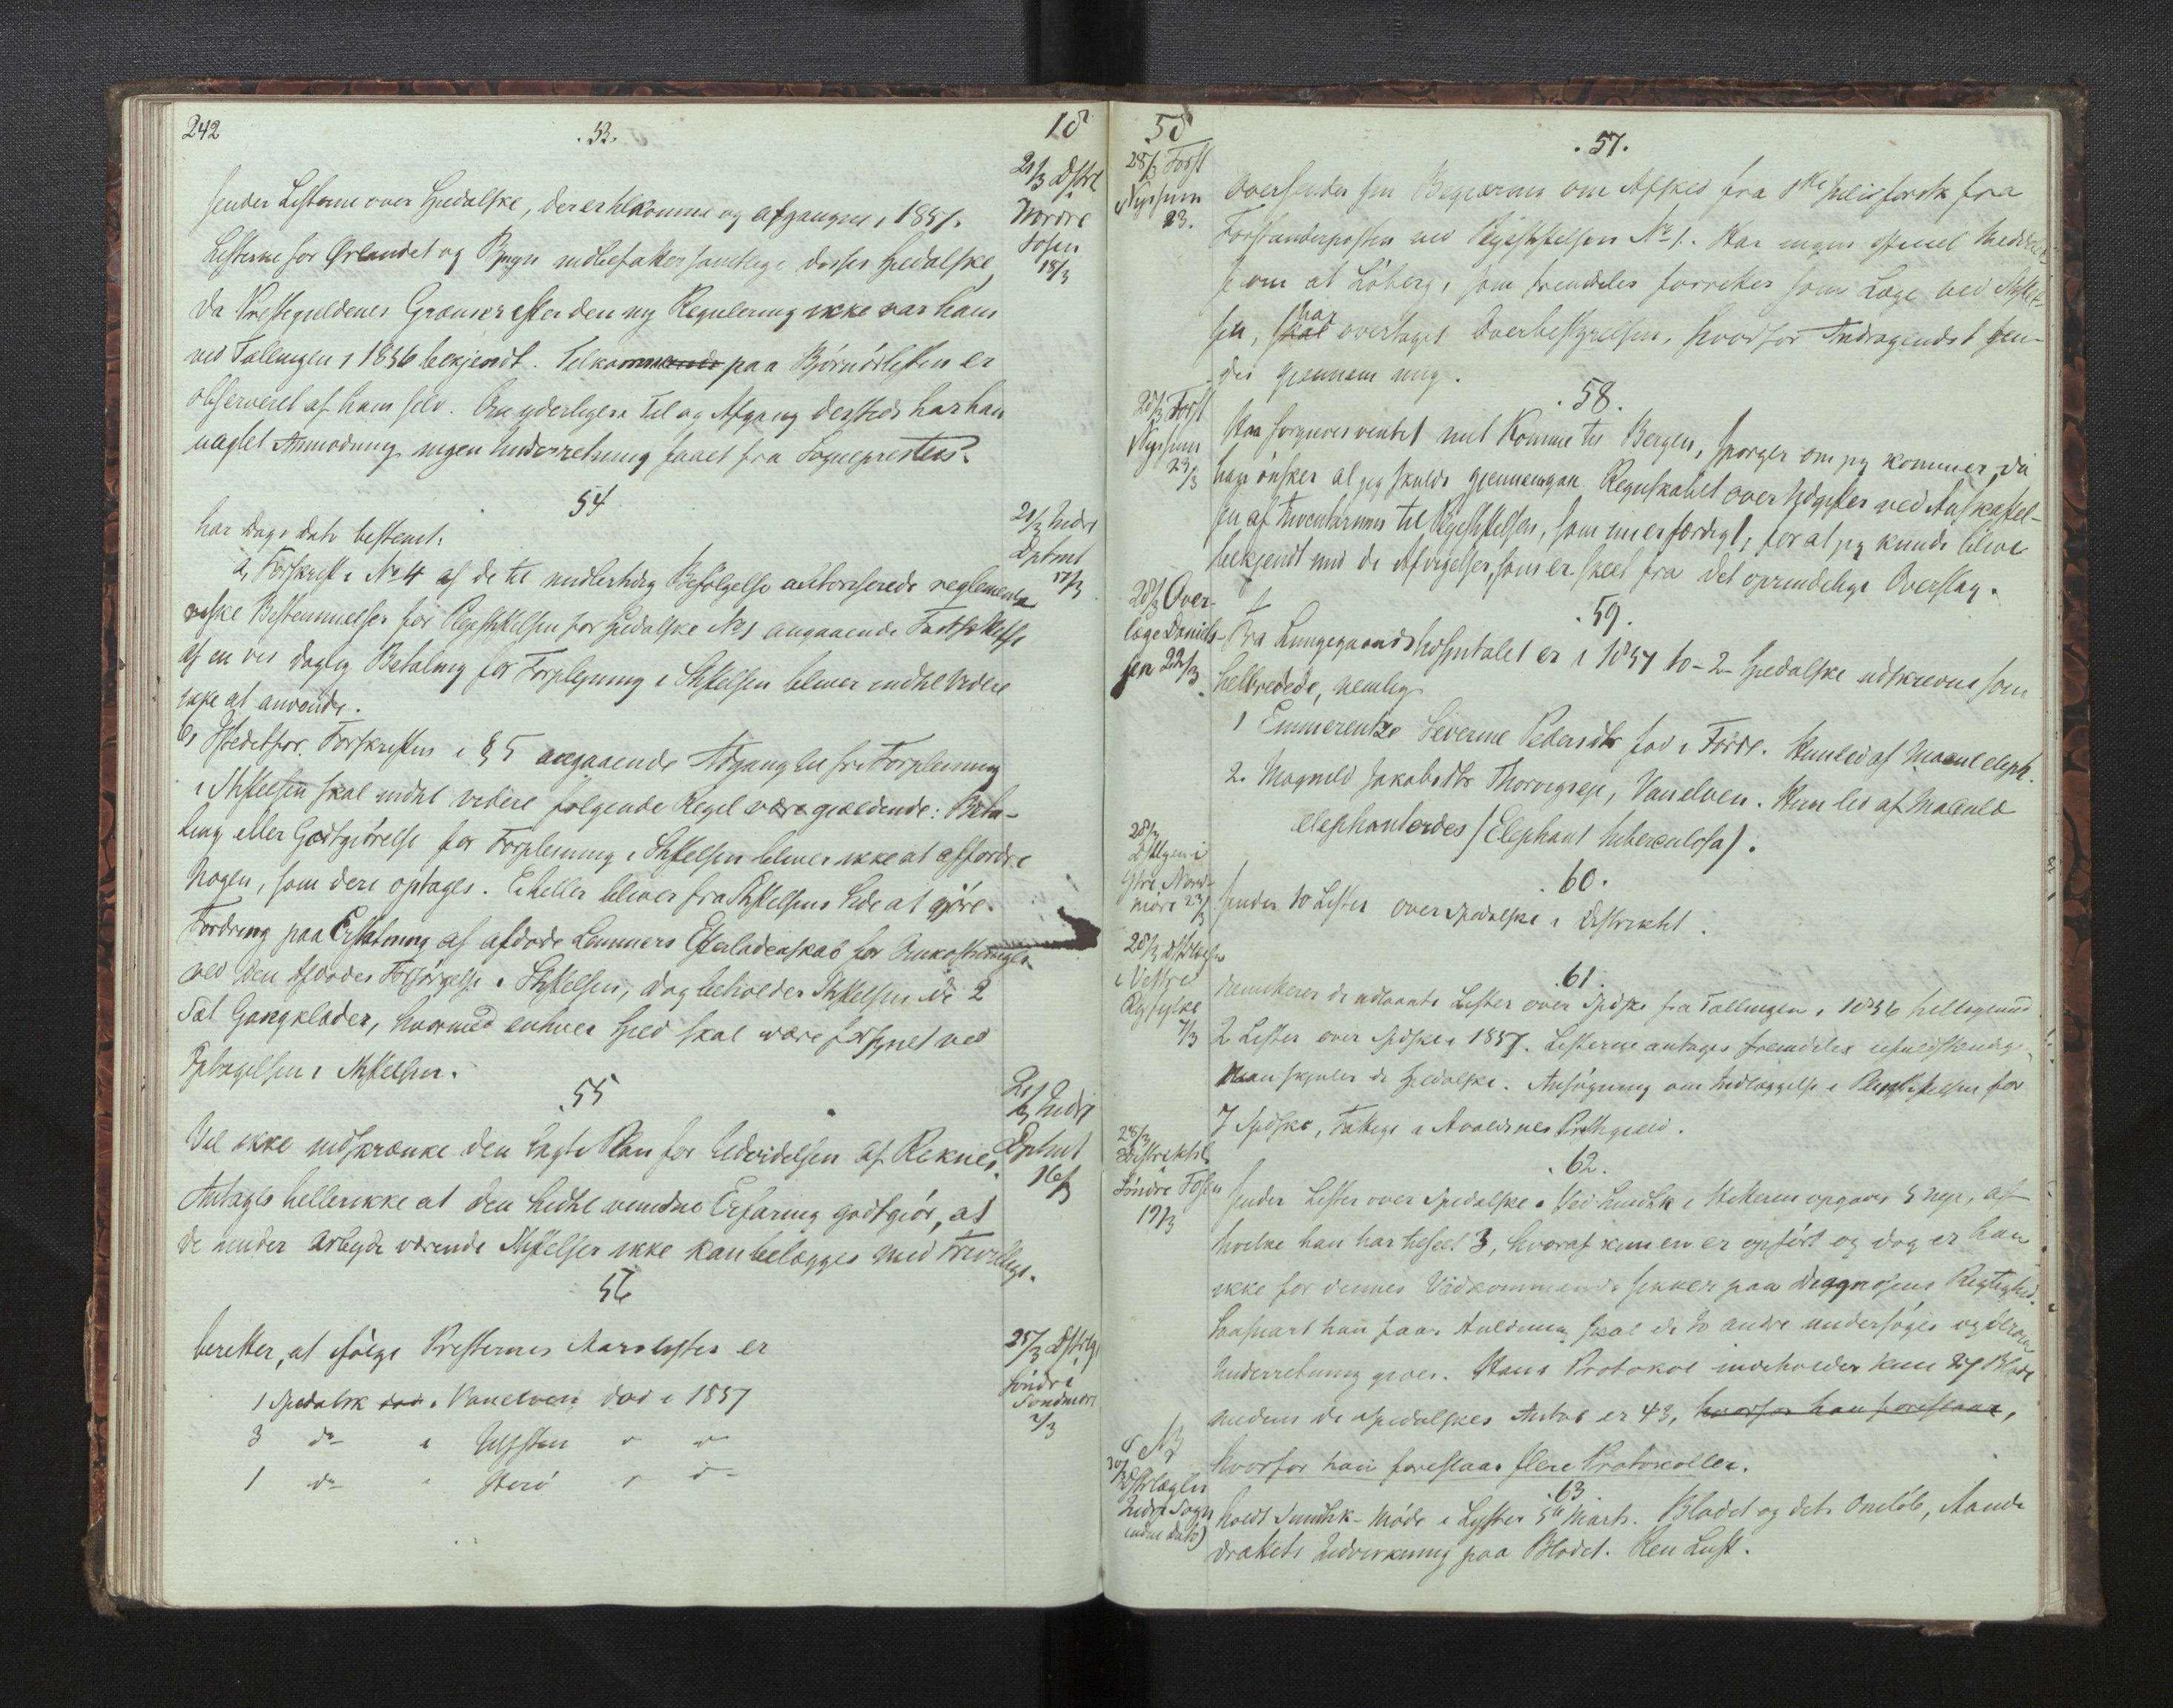 242
18
.53.
21/3 Dstrl
Nordre
Fosen
18/3
sender Listerne over Spedalske, der er tilkomne og afgangne i 1857.
Listerne for Ørlandet og Bjugn indbefatter samtlige disses Spedalske,
da Præstegjeldenes Grænser efter den ny Regulering ikke var ham
ved Tællingen i 1856 bekjendt. Tilkommende paa Björnörlisten er
observeret af ham selv. Om yderligere Til og Afgang dersteds har han
uagtet Anmodning ingen Underretning faaet fra Sognepresten.
54
21/3 Indre
Dptmt
17/3
har Dags Dato bestemt:
a, Forskrift i No 4 af de til midlertidig Befölgelse autoriserede reglementa-
riske Bestemmelser for Pleiestiftelsen for Spedalske No 1 angaaende Fastsættelse
af en vis daglig Betaling for Forplejning i Stiftelsen bliver indtil Videre
ikke at anvende.
b, Istedetfor Forskriften i § 5 angaaende Adgang til fri Forpleining
i Stiftelsen skal indtil videre følgende Regel være gjeldende: Beta-
ling eller Godtgiörelse for Forpleining i Stiftelsen bliver ikke at affordre
Nogen, som deri optages. Ei heller bliver fra Stiftelsens Side at gjöre
Fordring paa Erstatning af afdøde Lemmers Efterladenskab for Omkostninger
ved den Afdødes Forsörgelse i Stiftelsen, dog beholder Stiftelsen de 2
Sæt Gangklæder, hvormed enhver Sped skal være forsynet ved
Optagelsen i Stiftelsen.
.55
21/3 Indre
Dptmt
16/3
Vil ikke indskrænke den lagte Plan for Udvidelsen af Reknes.
Antages heller ikke at den hidtil vundne Erfaring godtgiör, at
de under Arbejde værende Stiftelser ikke kan belægges med Frivillige.
56
25/3 Dstrlg.
Söndre
Söndmöre
2/3
beretter, at ifølge Presternes Aarslister er
1 Spedalsk död i Vanelven död i 1857
3 do i Ulfsten " "
1 do " Herö " "
58
.57.
25/3 Forst
Nyssum
23.
Oversender sin Begjæring om Afsked fra
Forstanderposten ved Plejestiftelsen No 1. Har ingen officiel Meddelel-
se om at Löberg, som fremdeles forretter som Læge ved Stiftel-
sen, skal har overtaget Overbestyrelsen, hvorfor Andragendet sen-
des gjennem mig.
.58.
28/3 Forst
Nyssum
23/3
Har forgjeves ventet mit Komme til Bergen, spørger om jeg kommer, da
han önsker at jeg skulde gjennemgaa Regnskabet over Udgifter ved Anskaffel-
sen af Inventarium til Plejestiftelsen, som nu er færdigt, for at jeg kunde blive
bekjendt med de Afvigelser, som er skeet fra det oprindelige Overslag.
.59.
28/3 Over-
læge Daniels-
sen 22/3
Fra Lungegaardshospitalet er i 1857 to – 2 – Spedalske udskrevne som
helbredede, nemlig
1 Emmerentze Severine Pedersdtr fød i Förde. Hun led af Macul eleph.
2. Magnild Jakobsdtr Thorvegseje, Vanelven. Hun led af Macula
elephantordes (Elephant tuberculosa).
.60.
28/3
Dstlgen i
Ytre Nord-
möre 23/3
sender to Lister over Spedalske i Distriktet.
.61.
28/3 Dstrlægen
i Vestre
Ryfylke
7/3
remitterer de udlaante Lister over Spdske fra Tællingen i 1856 tilligemed
2 Lister over Spdske i 1857. Listerne antages fremdeles ufuldstændige,
Man skjuler de Spedalske. Ansögning om Indlæggelse i Pleiestiftelsen for
7 Spdske, Fattige i Avaldsnes Prstegjeld.
.62.
28/3
Distriktsl
Söndre Fosen
19/3
sender Lister over Spedalske. Ved Sundhk i Hitteren opgaves 5 nye, af
hvilke han har beseet 3, hvoraf kun en er opfört og dog er han
ikke for dennes Vedkommende sikker paa Diagnosens Rigtighed.
Saasnart han faar Anledning skal de to andre undersöges og derom
Underretning gives. Hans Protokol indeholder kun 27 Blade
medens de Spedalskes Antal er 43, hvorfor han foreslaar,
hvorfor han foreslaar flere Protokoller.
.63.
30/3
Dstrlægen
Indre Sogn
(uden Dato)
holdt Sundhk-Möde i Lyster 5te Marts. Blodet og dets Omløb, Aande
drættets Indvirkning paa Blodet. Ren Luft.